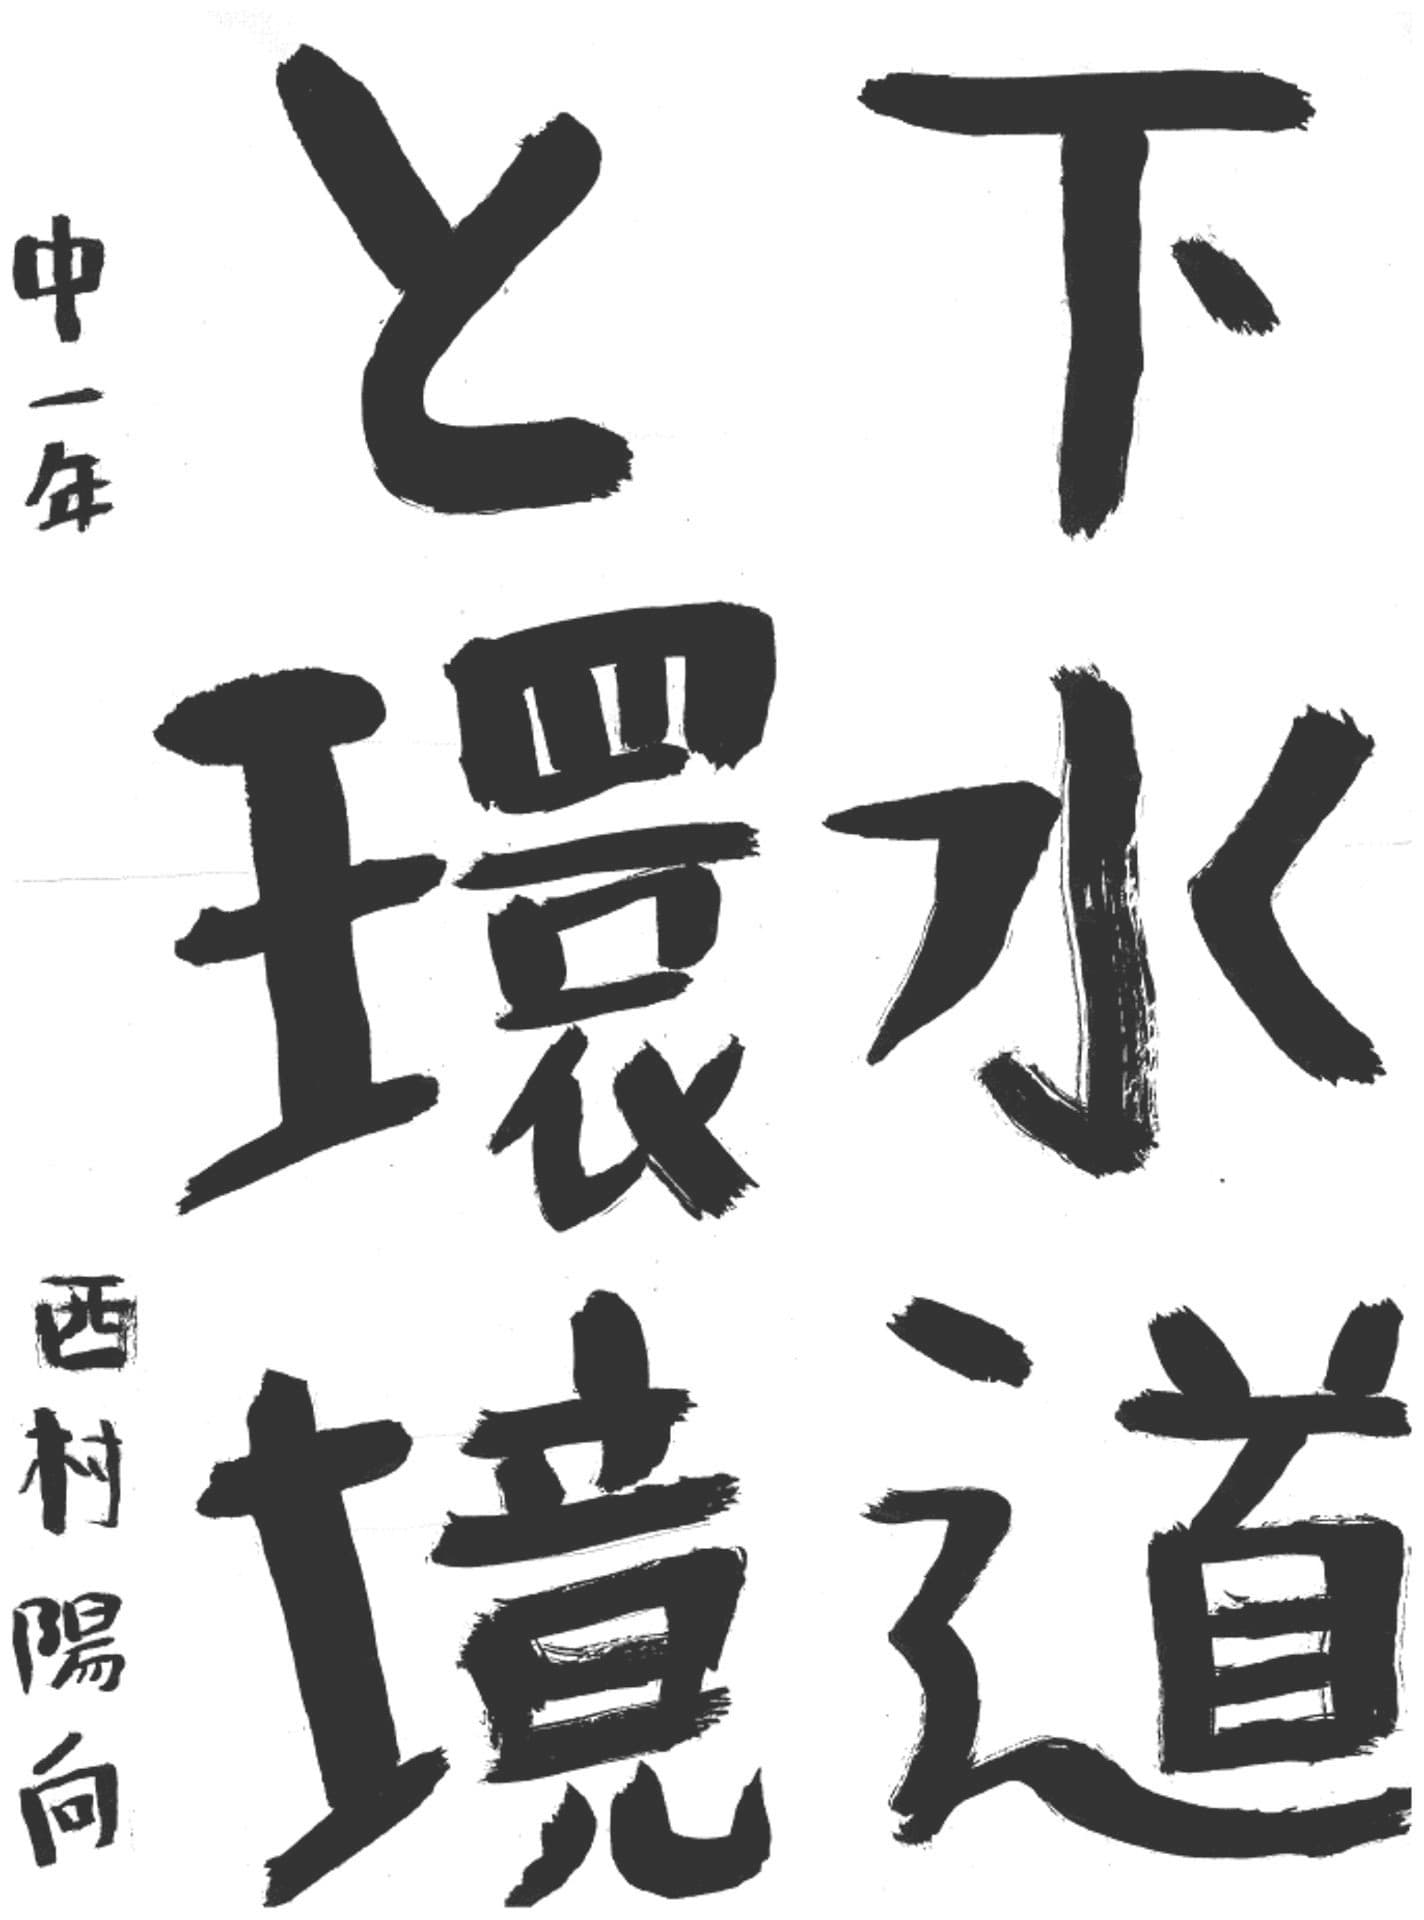 下水道
と環境
中一年 西村陽向